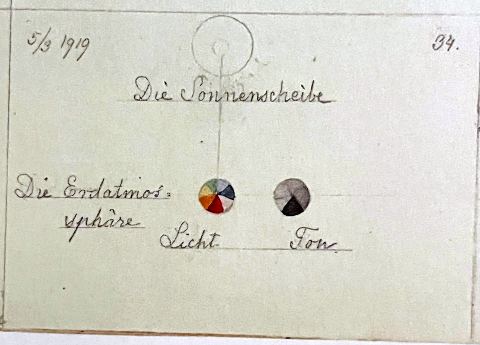 5/3 1919
34.
Die Sonnenscheibe
Die Erdatmos=
sphäre
Licht
Ton.